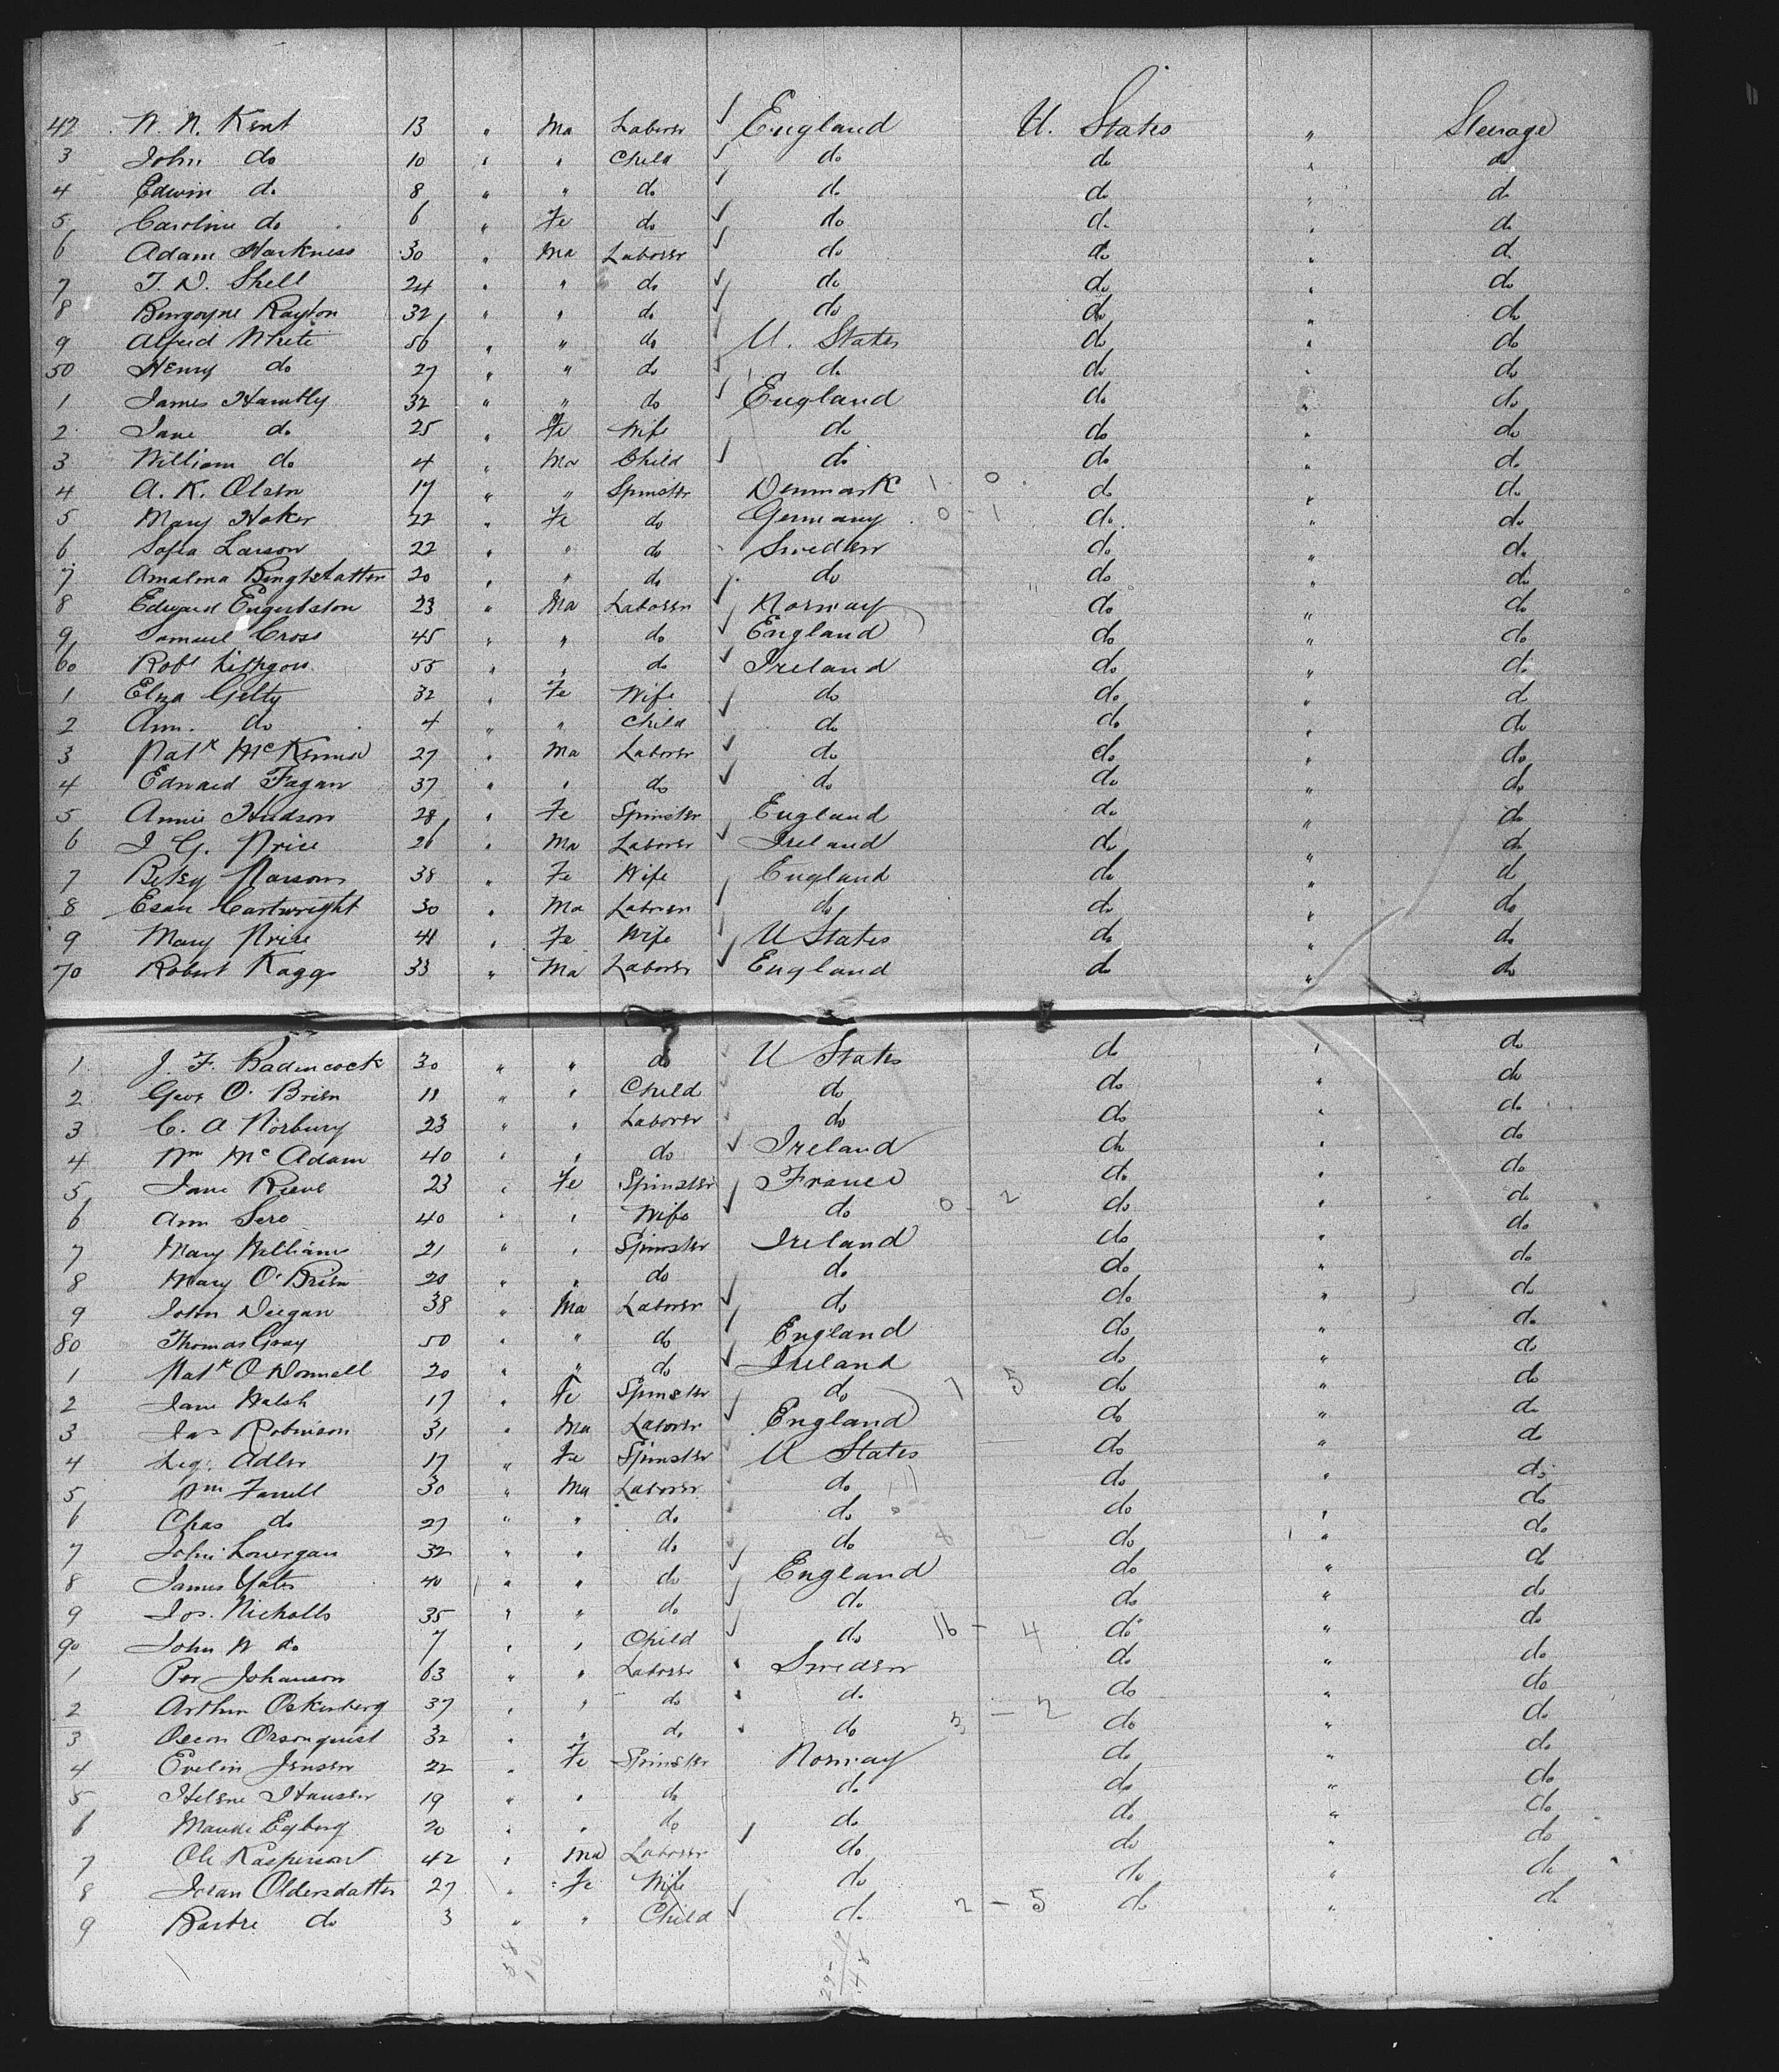 42 W. N. Kent 13 " Ma Laborer England U. States " Steerage
3 John do 10 " " Child do do " do
4 Edwin do 8 " " do do do " do
5 Caroline do 6 " Fe do do do " do
6 Adam Harkness 30 " Ma Laborer do do " do
7 T. D. Shell 24 " " do do do " do
8 Burgoyne Rayton 32 " " do do do " do
9 Alfred White 56 " " do U. States do " do
50 Henry do 27 " " do do do " do
1 James Hambly 32 " " do England do " do
2 Jane do 25 " Fe Wife do do " do
3 William do 4 " Ma Child do do " do
4 A. K. Olsen 17 " " Spinster Denmark 1 0 do " do
5 Mary Hoker 22 " Fe do Germany 0 - 1 do " do
6 Sofia Larson 22 " " do Sweden do " do
7 Amalona 20 " " do do do " do
8 Edward Engertston 23 " Ma Laborer Norway do " do
9 Samuel Cross 45 " " do England do " do
60 Robt 55 " " do Ireland do " do
1 Eliza Getty 32 " Fe Wife do do " do
2 Ann do 4 " " Child do do " do
3 Patk McKenna 27 " Ma Laborer do do " do
4 Edward Fagan 37 " " do do do " do
5 Annie Hudson 28 " Fe Spinster England do " do
6 J G. Price 26 " Ma Laborer Ireland do " do
7 Betsy Parsons 38 " Fe Wife England do " do
8 Esau Cartwright 30 " Ma Laborer do do " do
9 Mary Price 41 " Fe Wife U States do " do
70 Robert Kaggs 33 " Ma Laborer England do " do
1 J. F. Badencock 30 " " do U States do " do
2 Geor O'Brien 11 " " Child do do " do
3 C. A Norbury 23 " " Laborer do do " do
4 Wm McAdam 40 " " do Ireland do " do
5 Jane Rieve 23 " Fe Spinster France do " do
6 Ann Sero 40 " " Wife do 0 - 2 do " do
7 Mary Williams 21 " " Spinster Ireland do " do
8 Mary O'Brien 20 " " do do do " do
9 John Deegan 38 " Ma Laborer do do " do
80 Thomas Gray 50 " " do England do " do
1 Patk O Donnell 20 " " do Ireland do " do
2 Jane Walsh 17 " Fe Spinster do 7 5 do " do
3 Jas Robinson 31 " Ma Laborer England do " do
4 Adler 17 " Fe Spinster U States do " do
5 Wm Farrell 30 " Ma Laborer do do " do
6 Chas do 27 " " do do do " do
7 John Lonergan 32 " " do do 8 2 do " do
8 James Yates 40 " " do England do " do
9 Jos. Nicholls 35 " " do do do " do
90 John W do 7 " " Child do 16 - 4 do " do
1 Per Johanson 63 " " Laborer Sweden do " do
2 Arthur Oskenberg 37 " " do do do " do
3 Oscon Orsonquist 32 " " do do 3 - 2 do " do
4 Evelin Jensen 22 " Fe Spinster Norway do " do
5 Helene Hansen 19 " " do do do " do
6 Maude Egberg 20 " " do do do " do
7 Ole Kasperson 42 " Ma Laborer do do " do
8 Oldersdatter 27 " Fe Wife do do " do
9 Bartre do 3 " " Child do 2 - 5 do " do